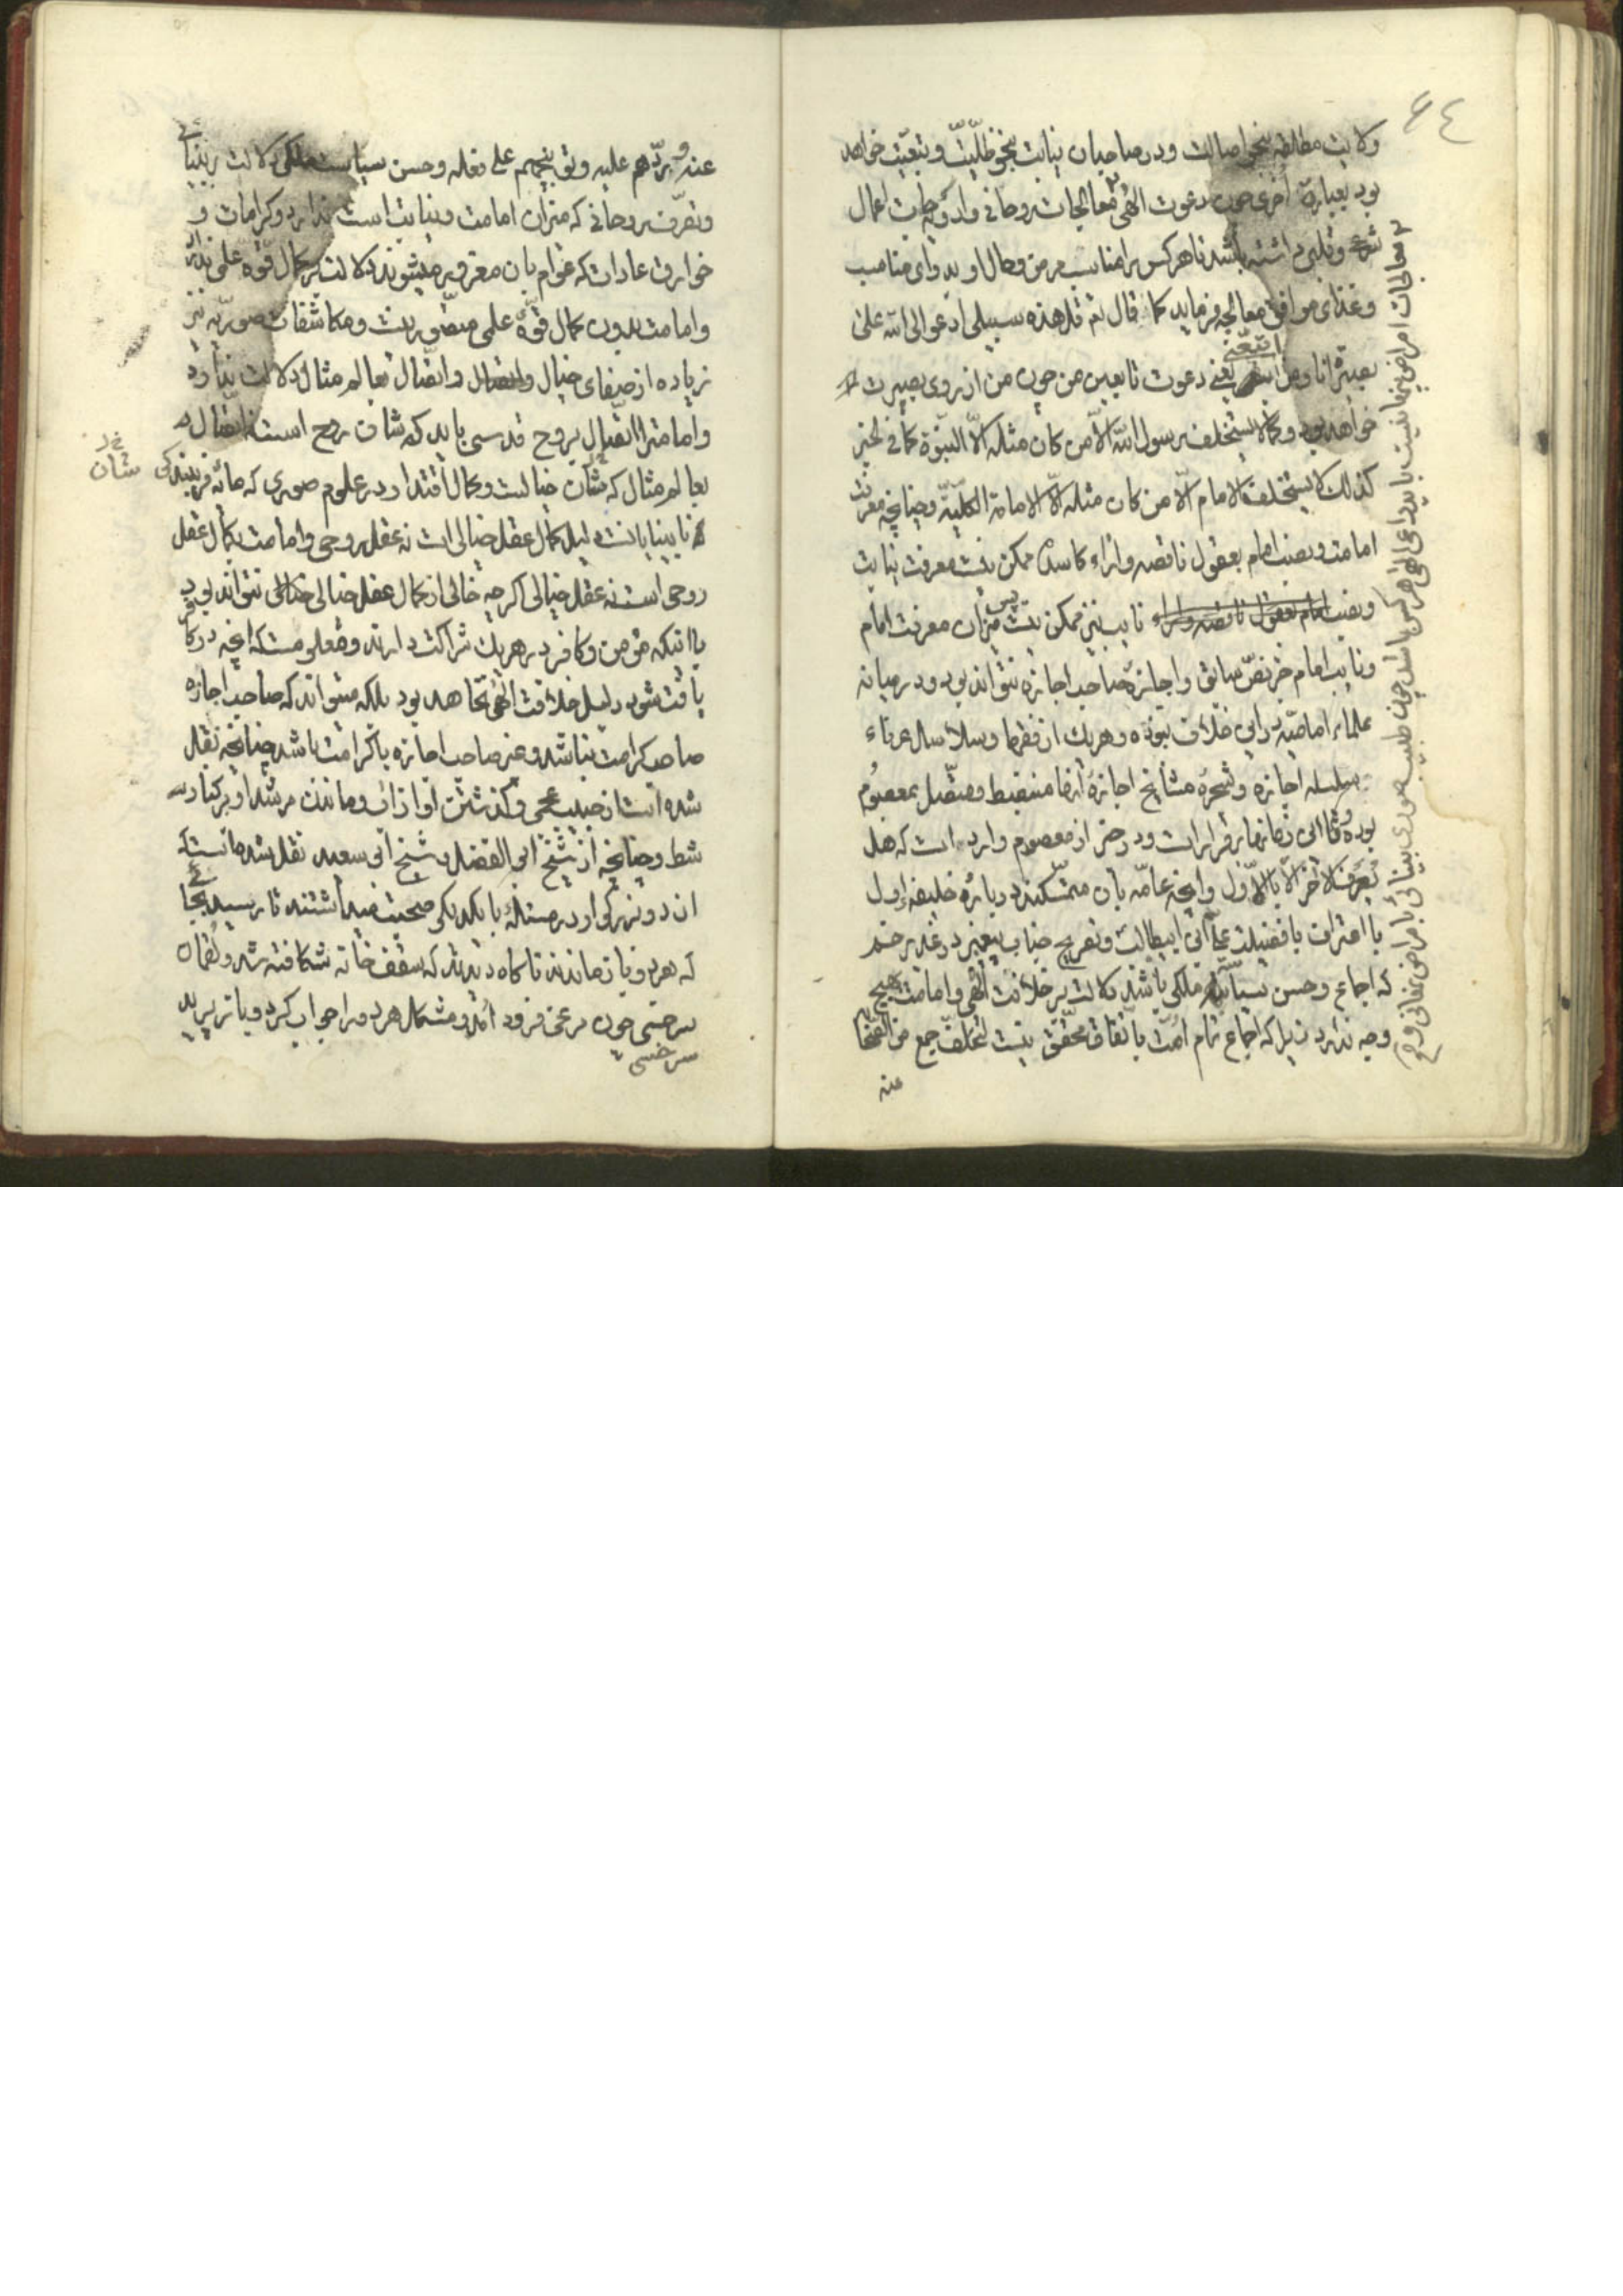 ۶۴
ولایت مطلقه بنحو اصالت و در صاحبان نیابت بنحو ظلّیّت و تبعیّت خواهد
بود بعبارة اخری چون دعوت الهی معالجات روحانی و ادویه جات اعمال
شرعی و قلبی داشته باشد تا هر کس را مناسب مرض و حال او بدوای مناسب
و غذای موافق معالجه فرماید کما قال تع قل هذه سبیلی ادعوا الی الله علی
بصیرة انا و من اتّبعنی یعنی دعوت تابعین من چون من از روی بصیرت
خواهد بود و کما لا یستخلف رسول الله الّا من کان مثله الّا النبوّة کما فی الخبر
کذلک لا یستخلف الامام الّا من کان مثله الّا الامامة الکلیّة و چنانچه معرفت
امامت و نصب امام بعقول ناقصه و اراء کاسده ممکن نیست معرفت نیابت
و نصب نایب نیز ممکن نیست پس میزان معرفت امام
و نایب امام جز نصّ سابق و اجازه صاحب اجازه نتواند بود و در میانه
علماء امامیّه در این خلاف نبوده و هر یک از فقها و سلاسل عرفاء
سلسله اجازه و شجره مشایخ اجازه آنها منضبط و متّصل بمعصوم
بوده و تا الی زماننا برقرار است و در خبر از معصوم وارد است که هل
یُعرف الآخر الّا بالاوّل و آنچه عامّه بان متمسّکیند در باره خلیفه اول
با اعتراف بافضیلت علی ابن ابیطالب و تصریح جناب پیغمبر در غدیر خم
که اجماع و حسن سیاست ملکی باشد دلالت بر خلافت الهی و امامت هیچ
وجه ندارد زیرا که اجماع تمام امّت باتفاق محقّق نیست لتخلف جمع من الصحابة
عنه
معالجات امراض نفسانیت باید داعی الهی هر کس باشد چون طبیب صوری بینائی بامراض نفسانی و
عنه و ردّهم علیه و توبیخهم علی فعله و حسن سیاست ملکی دلالت بر بینائی
و تصرّف روحانی که میزان امامت و نیابت است ندارد و کرامات و
خوارق عادات که عوام بان مغرور میشوند دلالت بر کمال قوّه علمی ندارد
و امامت بدون کمال قوّه علمی متصّور نیست و مکاشفات صوریّه نیز
زیاده از صفای خیال و اتّصال بعالم مثال دلالت ندارد
و امامت را اتّصال بروح قدسی باید که شان روح است نه اتّصال
بعالم مثال که شان خیالست و کمال اقتدار در علوم صوری که مائه فریبندگی
شان
نابینایانست دلیل کمال عقل خیالی است نه عقل روحی و امامت بکمال عقل
روحی است نه عقل خیالی اگرچه خالی از کمال عقل خیالی نتواند بود
با اینکه مؤمن و کافر در هر یک شراکت دارند و معلومست که آنچه در کافر
یافت شود دلیل خلافت الهی نخواهد بود بلکه میتواند که صاحب اجازه
صاحب کرامت نباشد و غیر صاحب اجازه با کرامت باشد چنانچه نقل
شده است از حبیب عجمی و گذشتن او از آب و ماندن مرشد او بر کنار
شط و چنانچه از شیخ ابی الفضل و شیخ ابی سعید نقل شده است که
ان دو بزرگوار در مسئله با یکدیگر صحبت میداشتند تا رسید بجائی
که هر دو باز ماندند ناگاه دیدند که سقف خانه شکافته شد و لقمان
سرخسی چون مرغی فرود آمد و مشکل هر دو را جواب کرد و باز پرید
سرخسی